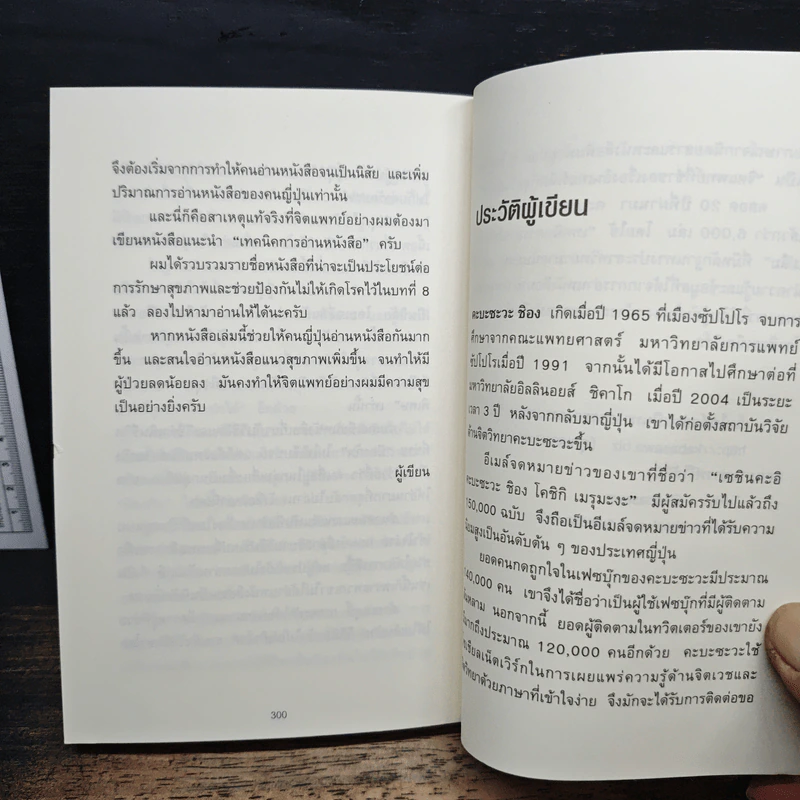 จึงต้องเริ่มจากการทำให้คนอ่านหนังสือจนเป็นนิสัย และเพิ่ม
ปริมาณการอ่านหนังสือของคนญี่ปุ่นเท่านั้น
และนี่ก็คือสาเหตุแท้จริงที่จิตแพทย์อย่างผมต้องมา
เขียนหนังสือแนะนำ “เทคนิคการอ่านหนังสือ” ครับ
ผมได้รวบรวมรายชื่อหนังสือที่น่าจะเป็นประโยชน์ต่อ
การรักษาสุขภาพและช่วยป้องกันไม่ให้เกิดโรคไว้ในบทที่ 8
แล้ว ลองไปหามาอ่านให้ได้นะครับ
หากหนังสือเล่มนี้ช่วยให้คนญี่ปุ่นอ่านหนังสือกันมาก
ขึ้น และสนใจอ่านหนังสือแนวสุขภาพเพิ่มขึ้น จนทำให้มี
ผู้ป่วยลดน้อยลง มันคงทำให้จิตแพทย์อย่างผมมีความสุข
เป็นอย่างยิ่งครับ
ผู้เขียน
300
ประวัติผู้เขียน
คะบะซะวะ ชิอง เกิดเมื่อปี 1965 ที่เมืองซัปโปโร จบการ
ศึกษาจากคณะแพทยศาสตร์ มหาวิทยาลัยการแพทย์
ซัปโปโรเมื่อปี 1991 จากนั้นได้มีโอกาสไปศึกษาต่อที่
มหาวิทยาลัยอิลลินอยส์ ชิคาโก เมื่อปี 2004 เป็นระยะ
เวลา 3 ปี หลังจากกลับมาญี่ปุ่น เขาได้ก่อตั้งสถาบันวิจัย
ด้านจิตวิทยาคะบะซะวะขึ้น
อีเมล์จดหมายข่าวของเขาที่ชื่อว่า “เซชินคะอิ
คะบะซะวะ ชิอง โคชิกิ เมรุมะงะ” มีผู้สมัครรับไปแล้วถึง
150,000 ฉบับ จึงถือเป็นอีเมล์จดหมายข่าวที่ได้รับความ
นิยมสูงเป็นอันดับต้น ๆ ของประเทศญี่ปุ่น
ยอดคนกดถูกใจในเฟซบุ๊กของคะบะซะวะมีประมาณ
140,000 คน เขาจึงได้ชื่อว่าเป็นผู้ใช้เฟซบุ๊กที่มีผู้ติดตาม
ล้นหลาม นอกจากนี้ ยอดผู้ติดตามในทวิตเตอร์ของเขายัง
มีมากถึงประมาณ 120,000 คนอีกด้วย คะบะซะวะใช้
โซเชียลเน็ตเวิร์กในการเผยแพร่ความรู้ด้านจิตเวชและ
จิตวิทยาด้วยภาษาที่เข้าใจง่าย จึงมักจะได้รับการติดต่อขอ